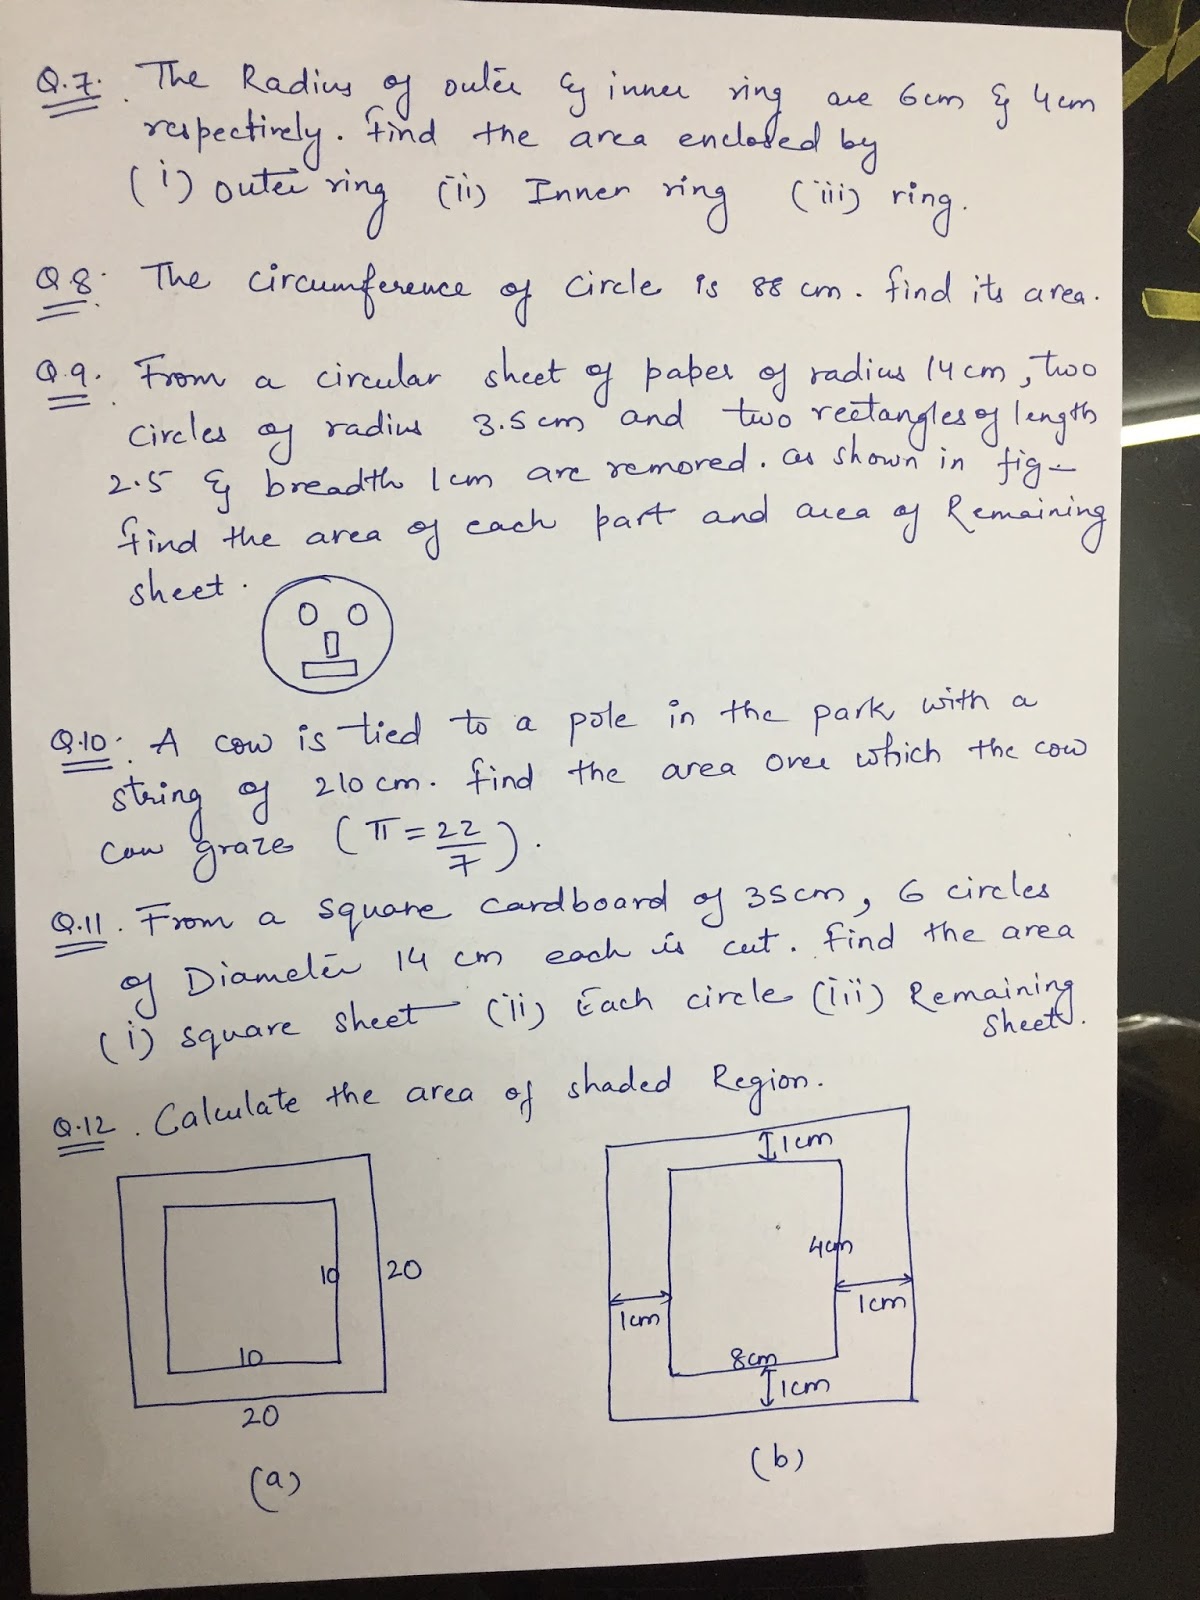 Q.7. The Radius of outer & inner ring are 6cm & 4cm
respectively. find the area enclosed by
(i) outer ring (ii) Inner ring (iii) ring.
Q.8. The circumference of circle is 88 cm. find its area.
Q.9. From a circular sheet of paper of radius 14cm, two
circles of radius 3.5cm and two rectangles of length
2.5 & breadth 1cm are removed. as shown in fig-
find the area of each part and area of Remaining
sheet.
Q.10. A cow is tied to a pole in the park with a
string of 210 cm. find the area over which the cow
can graze (π = 22/7).
Q.11. From a square cardboard of 35cm, 6 circles
of Diameter 14 cm each is cut. find the area
(i) square sheet (ii) Each circle (iii) Remaining
sheet.
Q.12. Calculate the area of shaded Region.
1cm
4cm
10
20
1cm
1cm
10
8cm
1cm
20
(a)
(b)